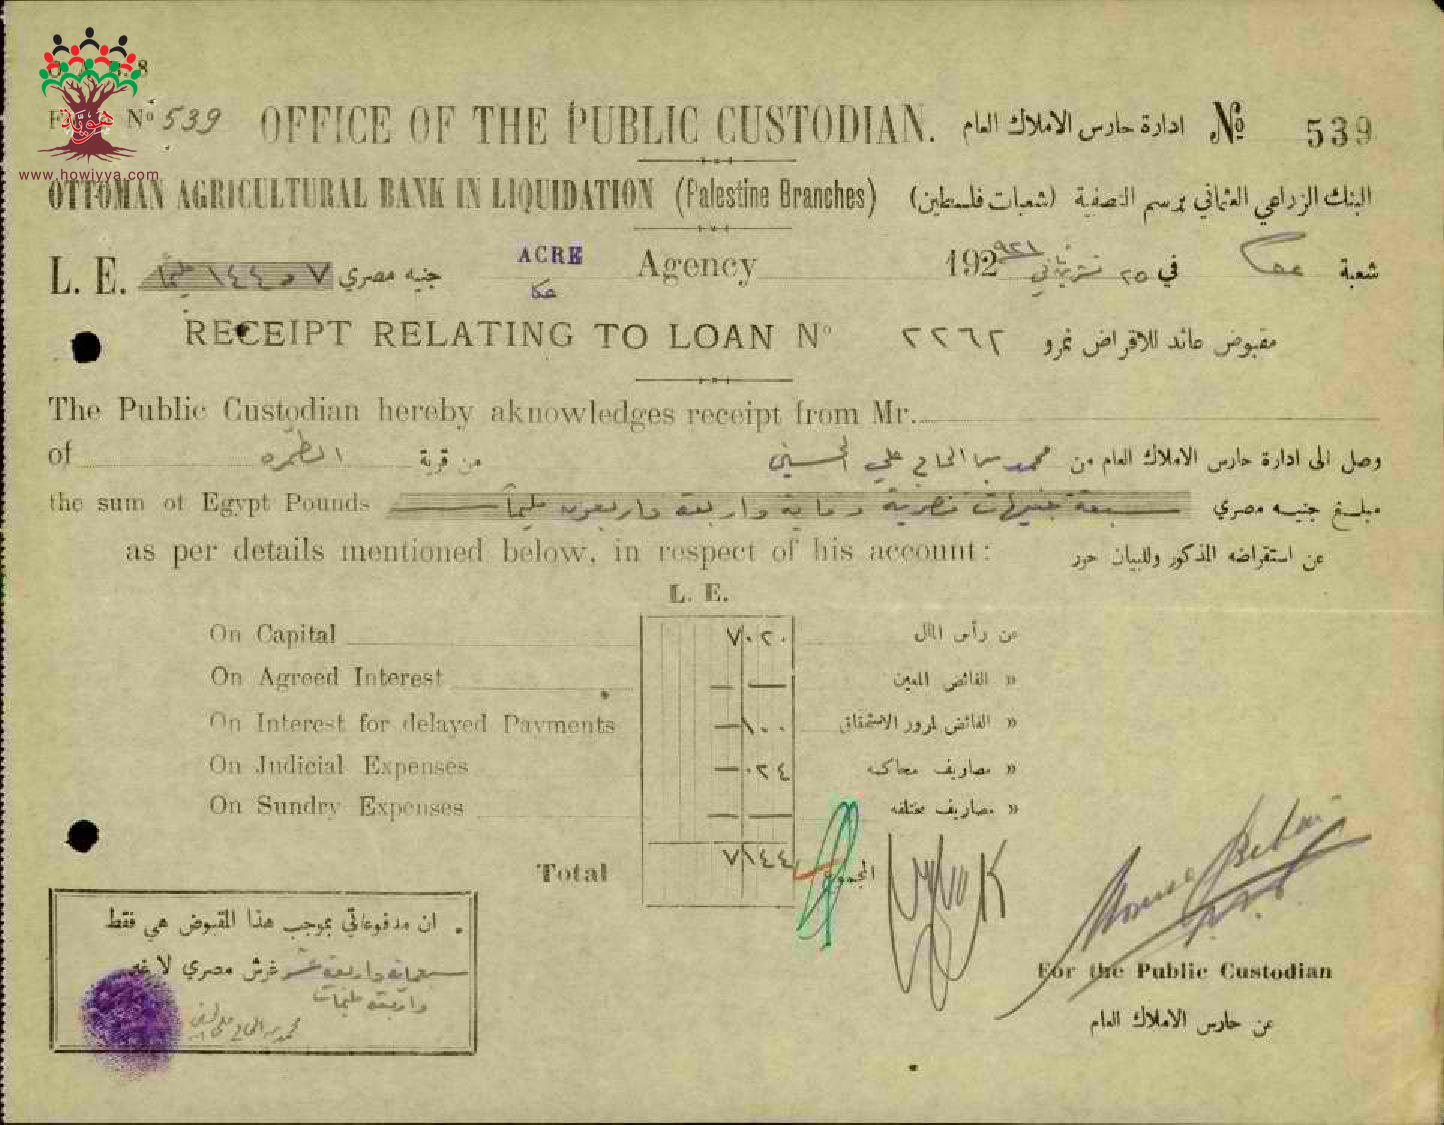 هوية
www.howiyya.com
Nº 539 OFFICE OF THE PUBLIC CUSTODIAN. ادارة حارس الاملاك العام Nº 539
OTTOMAN AGRICULTURAL BANK IN LIQUIDATION (Palestine Branches) البنك الزراعي العثماني برسم التصفية (شعبات فلسطين)
L. E. ٧ و ١٤٤ مليما جنيه مصري ACRE عكا Agency 192 ٩٢١ في ٢٥ تشرين ثاني شعبة عكا
RECEIPT RELATING TO LOAN Nº ٢٢٦٢ مقبوض عائد للاقراض نمرو
The Public Custodian hereby aknowledges receipt from Mr.
of الطمره من قرية محمد الحاج علي الحسين وصل الى ادارة حارس الاملاك العام من
the sum of Egypt Pounds سبعة جنيهات مصرية و ماية واربعة واربعون مليماً مبلغ جنيه مصري
as per details mentioned below, in respect of his account: عن استقراضه المذكور وللبيان حرر
L. E.
On Capital ٧ ٠٢٠ عن رأس المال
On Agreed Interest — — » الفائض المعين
On Interest for delayed Payments — ١٠٠ » الفائض لمرور الاستحقاق
On Judicial Expenses — ٠٢٤ » مصاريف محاكمه
On Sundry Expenses — — » مصاريف مختلفه
Total ٧ ١٤٤ المجموع
ان مدفوعاتي بموجب هذا المقبوض هي فقط
سبعماية واربعة عشر غرش مصري لا غير
واربعة مليمات
For the Public Custodian
عن حارس الاملاك العام